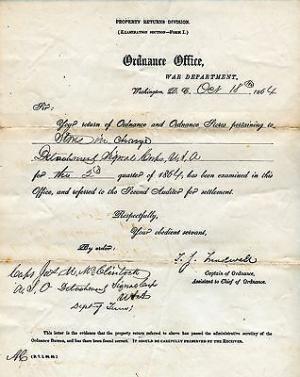 PROPERTY RETURNS DIVISION.
(EXAMINATION SECTION—FORM I.)
Ordnance Office,
WAR DEPARTMENT,
Washington, D. C. Oct 18th, 1864
Sir:
Your return of Ordnance and Ordnance Stores pertaining to
Stores in Charge
Detachment Signal Corps, U.S.A
for the 2d quarter of 1864, has been examined in this
Office, and referred to the Second Auditor for settlement.
Respectfully,
Your obedient servant,
By order:
T. J. Treadwell
Captain of Ordnance,
Assistant to Chief of Ordnance.
Capt Jos. M. McClintock
A. S. O Detachment Signal Corps
Dept of Tenn
This letter is the evidence that the property return referred to above has passed the administrative scrutiny of the
Ordnance Bureau, and has there been found correct. IT SHOULD BE CAREFULLY PRESERVED BY THE RECEIVER.